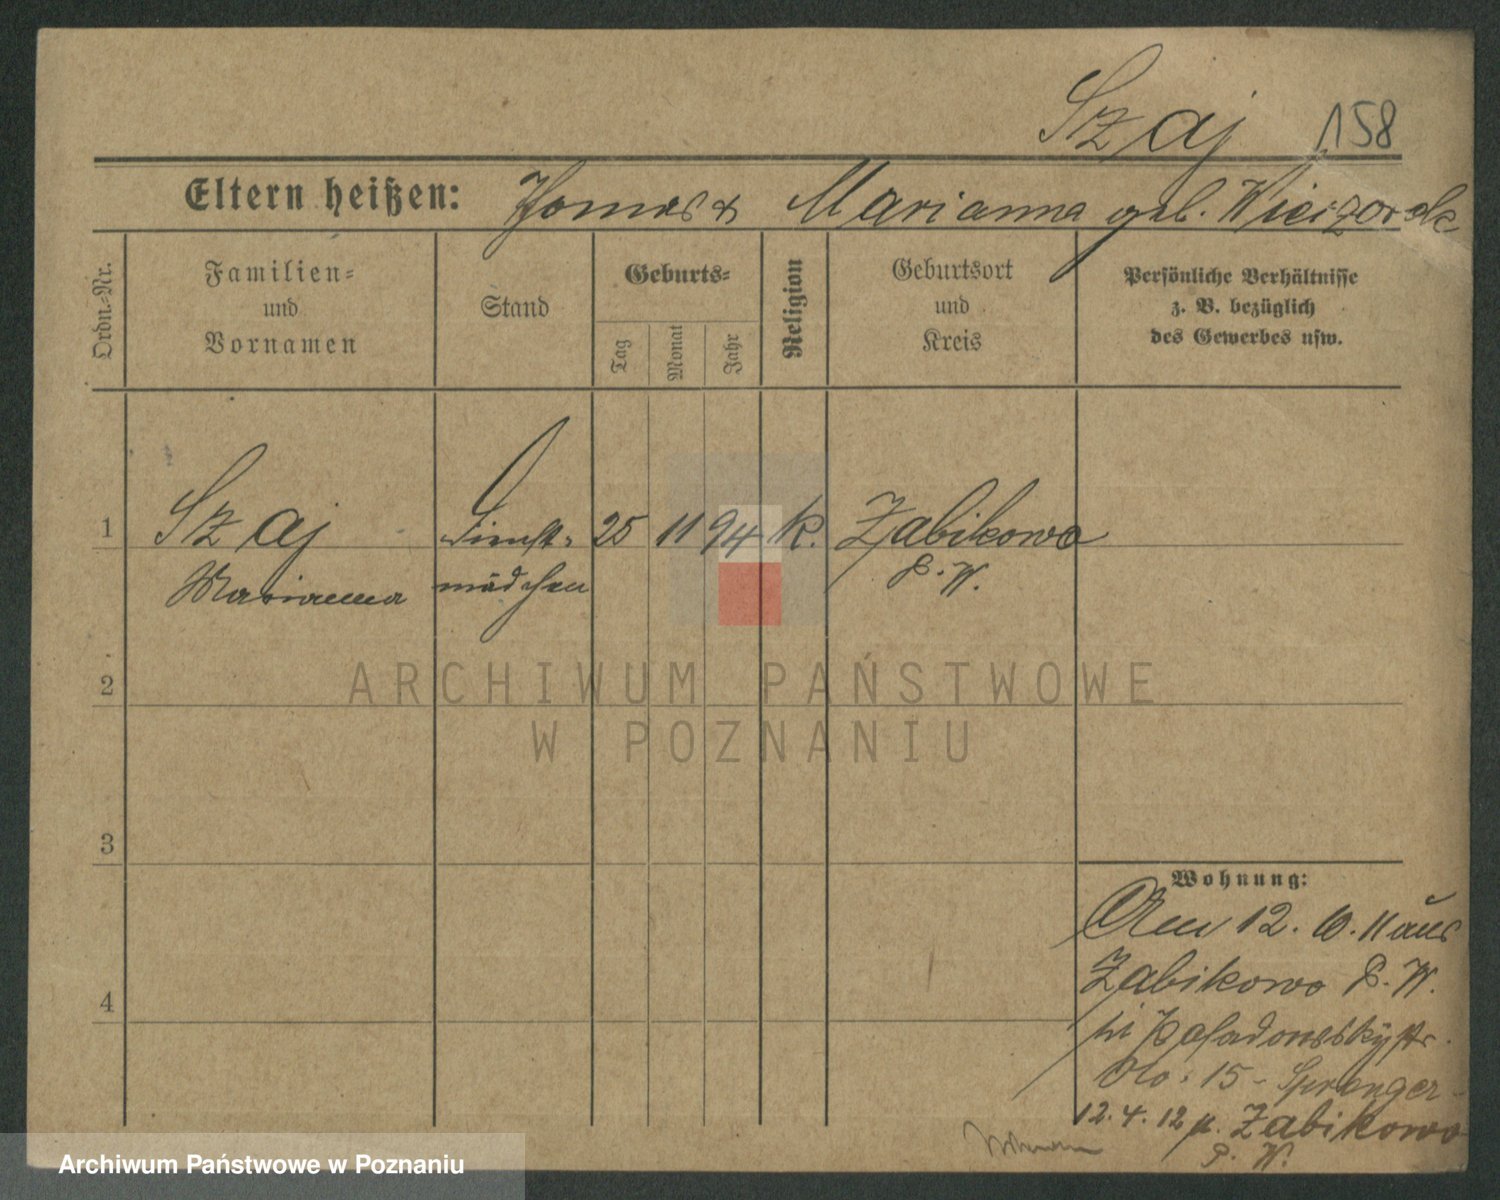 Szaj 158
Eltern heißen: Thomas & Marianna geb. Wieczorek
Ordn.-Nr.
Familien-
und
Vornamen
Stand
Geburts-
Tag
Monat
Jahr
Religion
Geburtsort
und
Kreis
Persönliche Verhältnisse
z. B. bezüglich
des Gewerbes usw.
1 Szaj Dienst- 25 11 94 k. Zabikowo
Marianna mädchen P. W.
2
3
4
Wohnung:
Am 12. 10. 11 aus
Zabikowo P. W.
str.
No. 15 - Sprenger -
12.4.12 n. Zabikowo
P. W.
ARCHIWUM PAŃSTWOWE
W POZNANIU
Archiwum Państwowe w Poznaniu